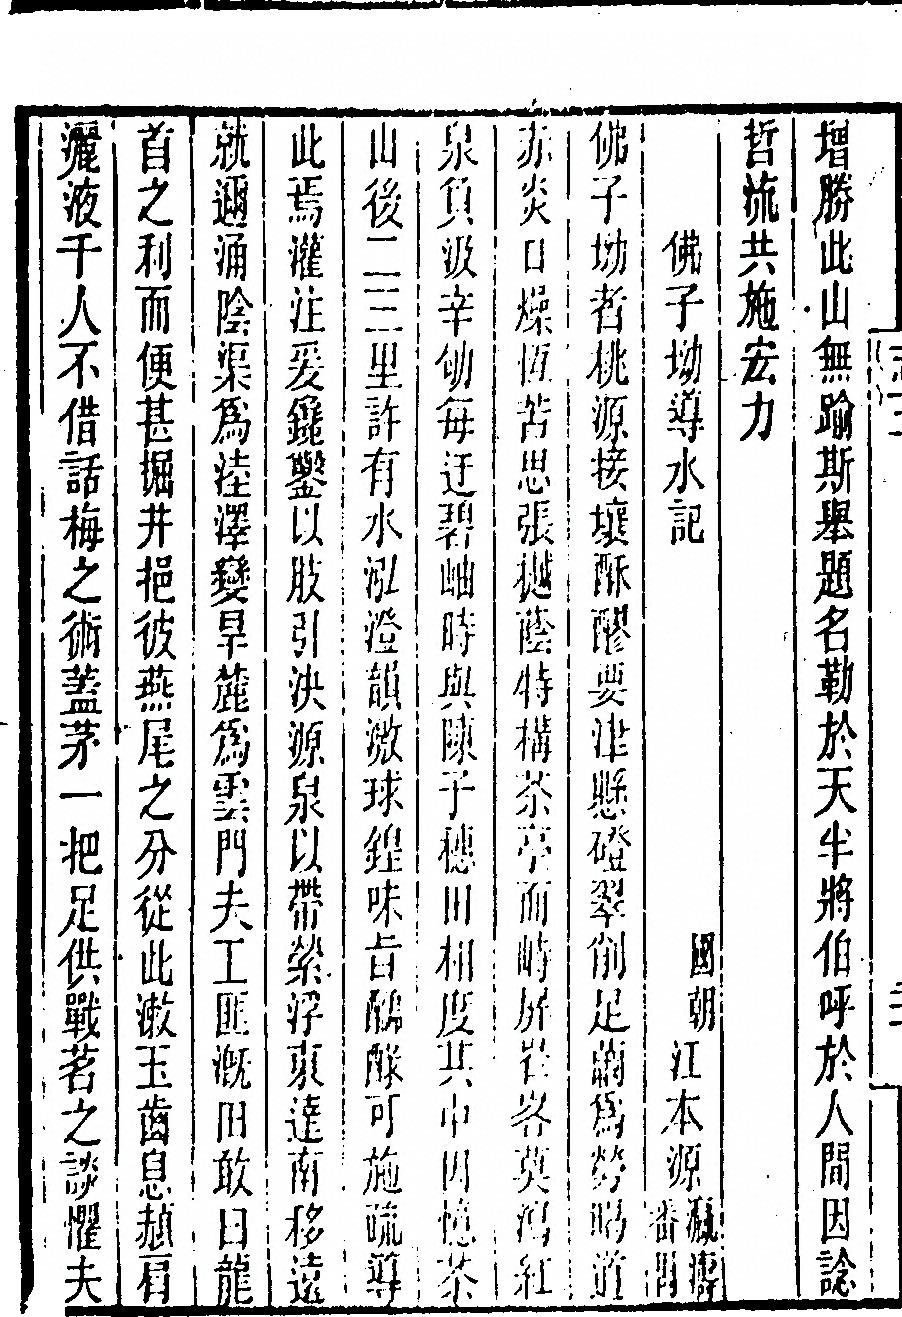 增勝此山無踰斯舉題名勒於天半將伯呼於人間因諗
哲流共施宏力
佛子坳導水記
國朝江本源瀛濤番禺
佛子坳者桃源接壤酥醪要津懸磴翠削足繭爲勞暍道
赤炎口燥恆苦思張樾蔭特構茶亭而峙屏岩客莫瀉紅
泉負汲辛劬每迂碧岫時與陳子穗田相度其中因憶茶
山後二三里許有水泓澄韻激球鍠味旨醍醐可施疏導
此焉灌注爰鑱鑿以肢引決源泉以帶縈浮東達南移遠
就邇涌陰渠爲洼澤變旱麓爲雲門夫工匪溉田敢曰龍
首之利而便甚掘井挹彼燕尾之分從此漱玉齒息赪肩
灑液千人不借話梅之術蓋茅一把足供戰茗之談懼夫